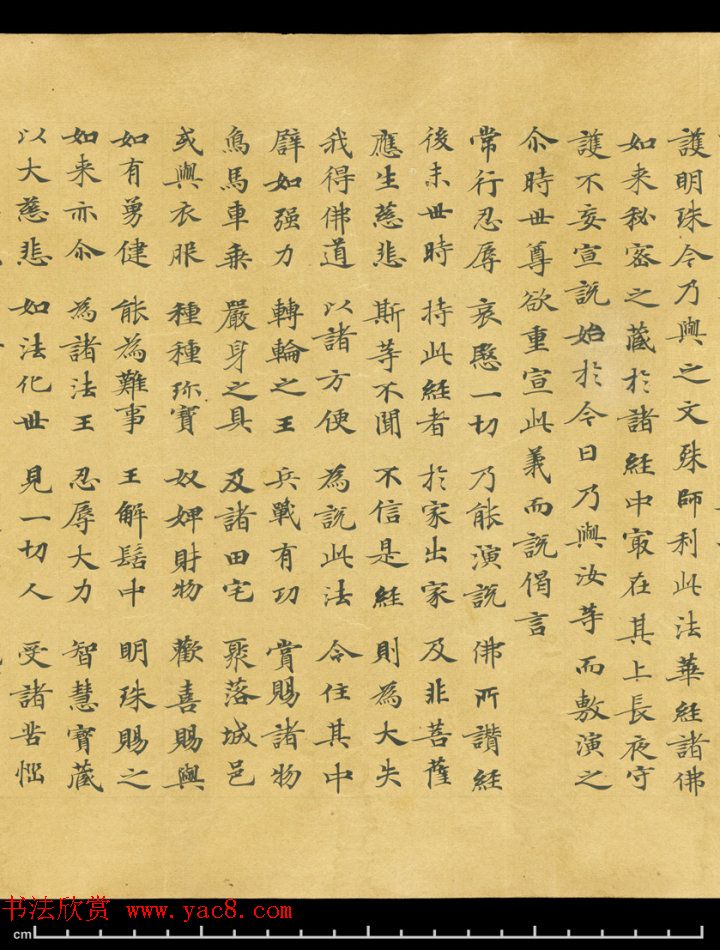 護明珠今乃與之文殊師利此法華経諸佛
如来秘密之藏於諸経中㝡在其上長夜守
護不妄宣說始於今日乃與汝等而敷演之
尒時世尊欲重宣此義而說偈言
常行忍辱 哀愍一切 乃能演說 佛所讚経
後末世時 持此経者 於家出家 及非菩薩
應生慈悲 斯等不聞 不信是経 則為大失
我得佛道 以諸方便 為說此法 令住其中
辟如强力 轉輪之王 兵戰有功 賞賜諸物
鳥馬車乗 嚴身之具 及諸田宅 聚落城邑
或與衣服 種種珎寶 奴婢財物 歡喜賜與
如有勇健 能為難事 王解髻中 明珠賜之
如来亦尒 為諸法王 忍辱大力 智慧寶藏
以大慈悲 如法化世 見一切人 受諸苦惱
书法欣赏 www.yac8.com
cm